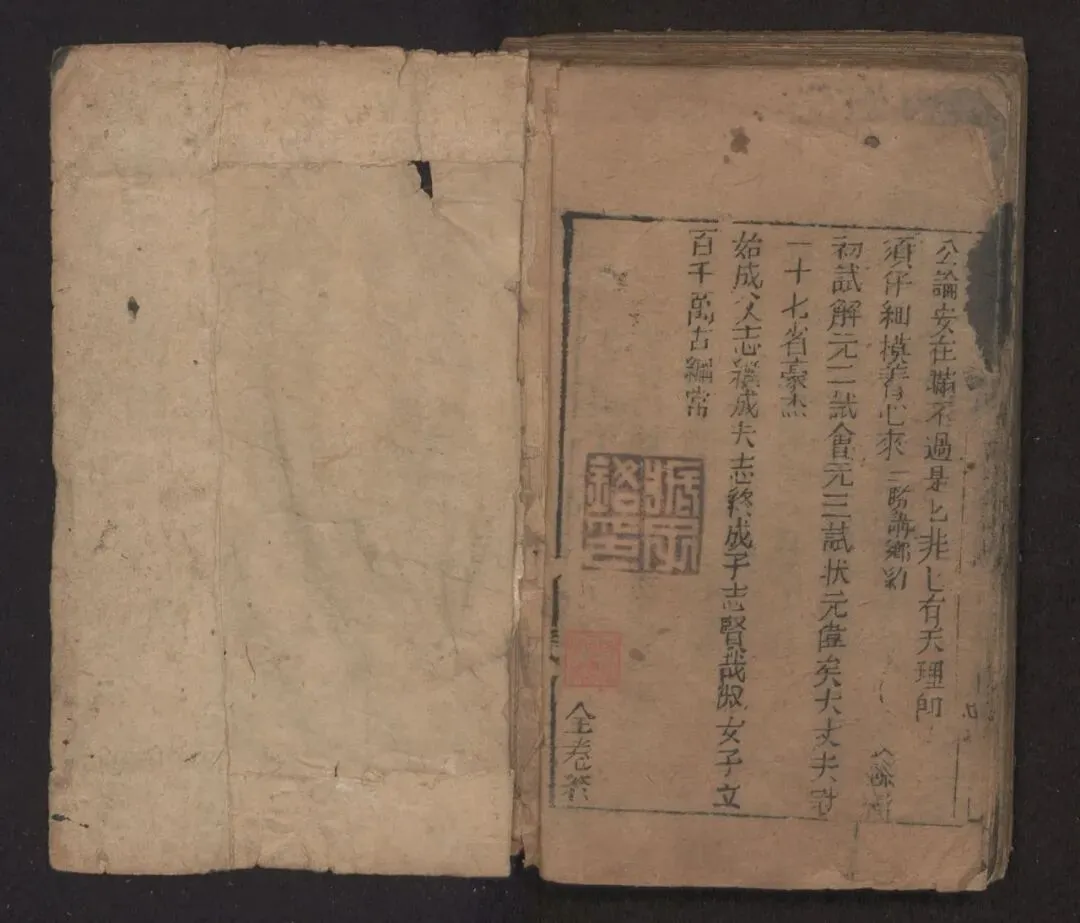 公論安在瞞不過是匕非匕有天理即
須仔細模着心來 二賢講鄉約
初試解元二試會元三試狀元偉矣大丈夫
一十七省豪杰
始成父志繼成夫志終成子志賢哉淑女子立
百千萬古綱常
全卷